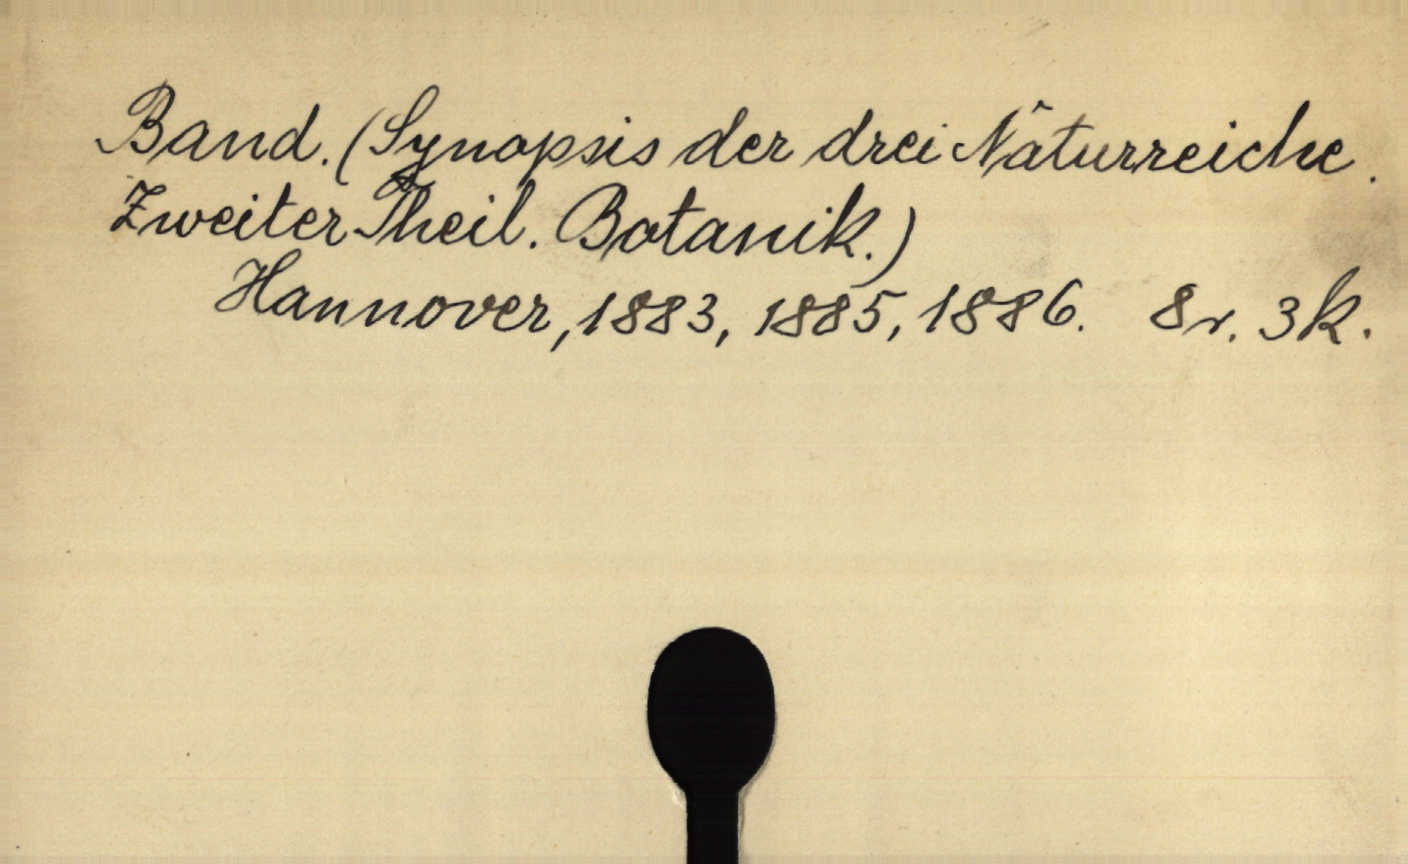 Band. (Synopsis der drei Naturreiche.
Zweiter Theil. Botanik.)
Hannover, 1883, 1885, 1886. 8r. 3k.